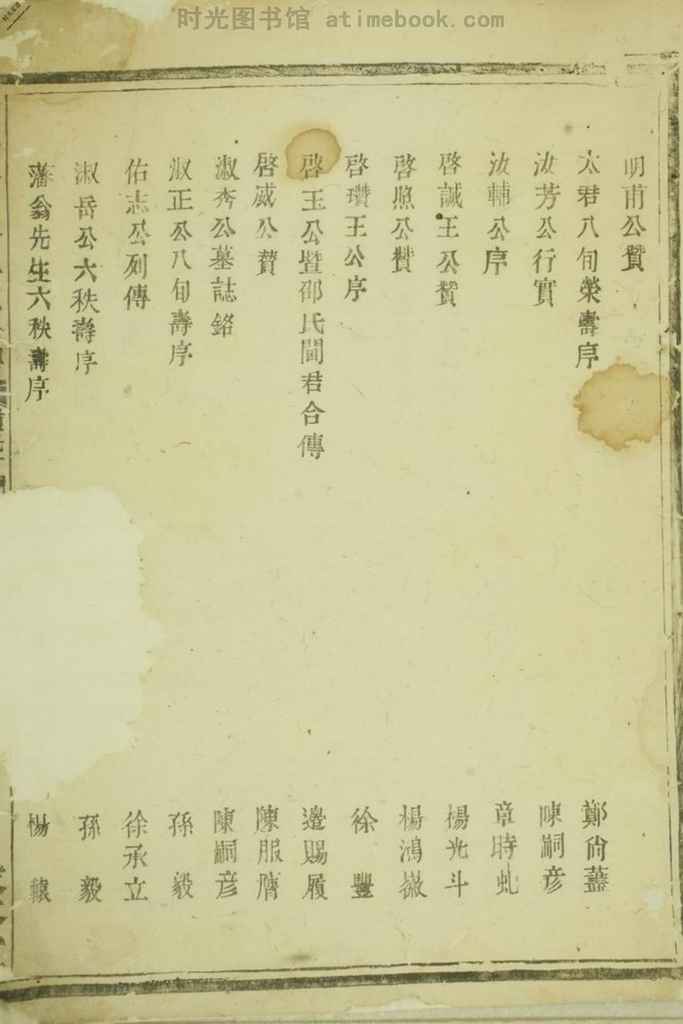 时光图书馆 atimebook.com
明甫公贊
太君八旬榮壽序 鄭尙藎
汝芳公行實 陳嗣彦
汝輔公序 章時虬
啓誠王公贊 楊光斗
啓照公贊 楊鴻嶽
啓瓚王公序 徐豐
啓玉公暨邵氏閫君合傳 邊賜履
啓威公贊 陳服膺
淑秀公墓誌銘 陳嗣彦
淑正公八旬壽序 孫毅
佑志公列傳 徐承立
淑岳公六秩壽序 孫毅
藩翁先生六秩壽序 楊